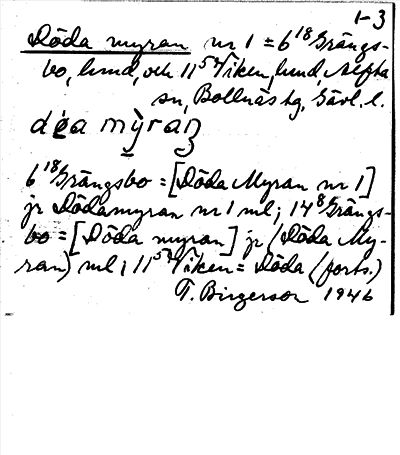 1-3
Döda myran nr 1 ± 6¹⁸ Grängs-
bo, hmd, och 11⁵⁴ Viken, hmd, Alfta
sn, Bollnäs tg, Gävl. l.
6¹⁸ Grängsbo = [Döda Myran nr 1]
jr Dödamyran nr 1 ml; 14⁸ Grängs-
bo = [Döda myran] jr (Döda My-
ran) ml; 11⁵⁴ Viken = Döda (forts.)
T. Birgerson 1946